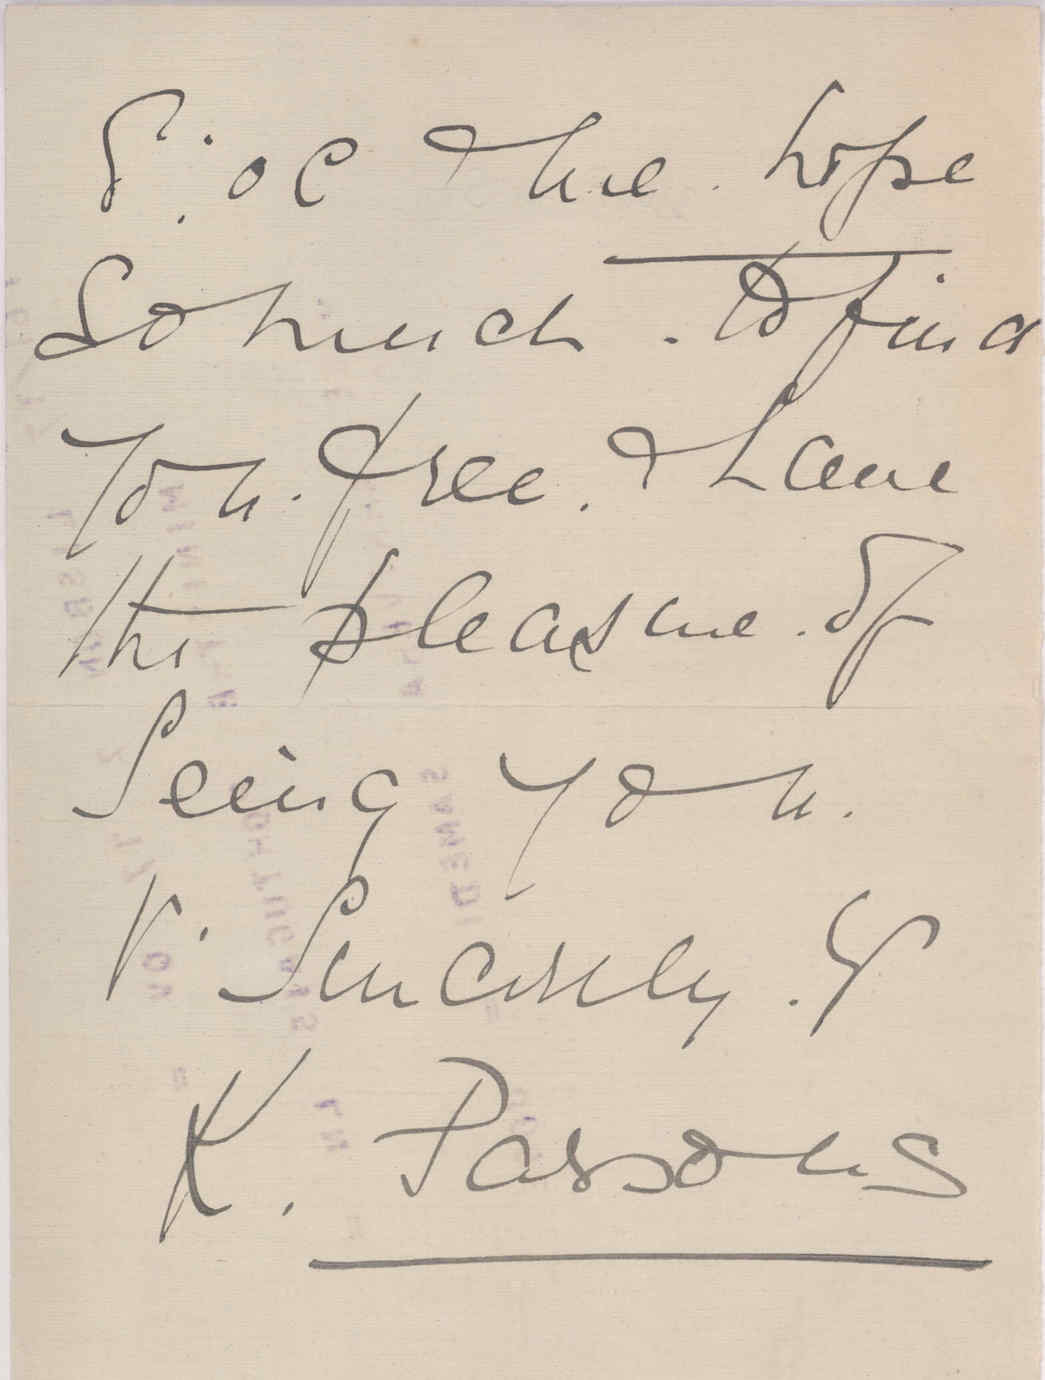 5 : oc hope
So much . to find
you . free . & have
the pleasure . of
Seeing you .
V . Sincerely . Y
K . Parsons
SAMEDI